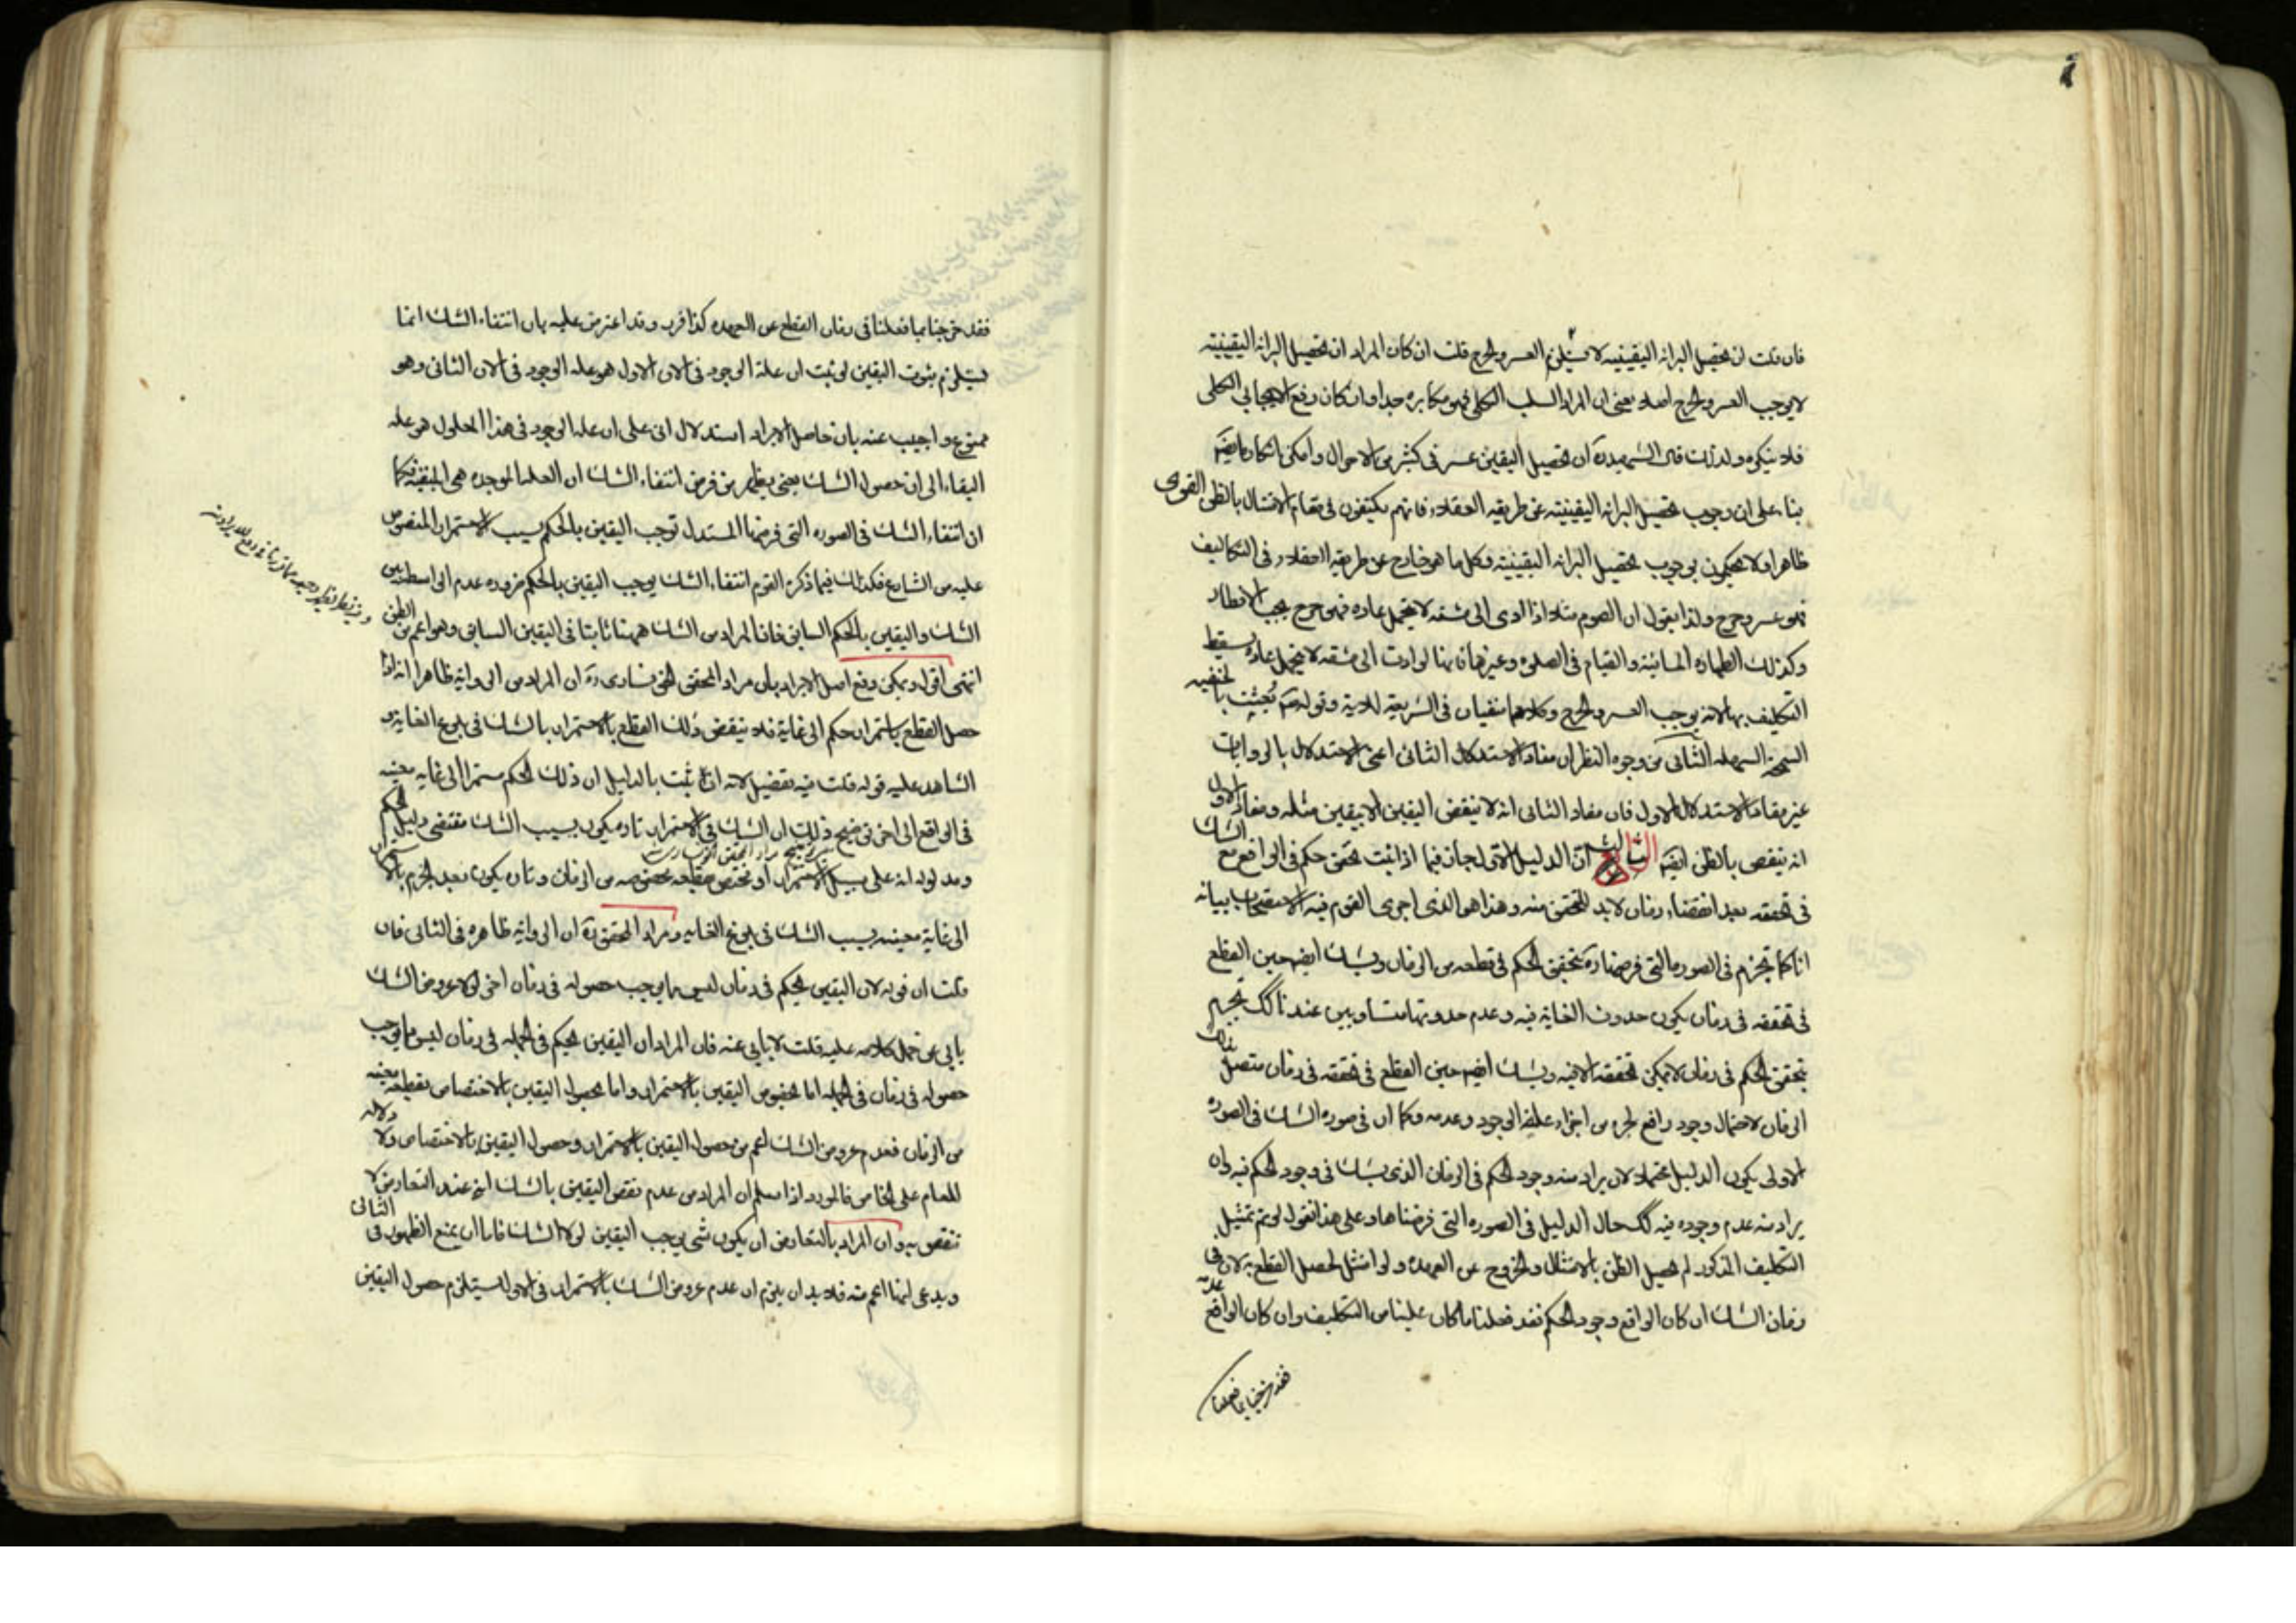 فان قلت ان تحصيل البرائة اليقينية لا يستلزم العسر والحرج قلت ان كان المراد ان تحصيل البرائة اليقينية
لا يوجب العسر والحرج اصلا يعنى ان المراد السلب الكلى فهو مكابره جدا وان كان رفع الايجاب الكلى
فلا ينكره ولذلك قال الشهيد ره ان تحصيل اليقين عسر فى كثير من الاحوال وامكن
بناء على ان وجوب تحصيل البرائة اليقينية عن طريقة العقلاء فانهم يكتفون فى مقام الامتثال بالظن القوى
ظاهرا ولا يحكمون بوجوب تحصيل البرائة اليقينية وكل ما هو خارج عن طريقة العقلاء فى التكاليف
فهو عسر وحرج ولذا يقول ان الصوم مثلا اذا ادى الى مشقة لا يتحمل عادة فهو حرج يجب الافطار
وكذلك الطهارة المائية والقيام فى الصلوة وغيرها فانها لو ادت الى مشقة لا يتحمل عادة يسقط
التكليف بها لانه يوجب العسر والحرج وكلاهما منفيان فى الشريعة وقوله بعثت بالحنفية
السمحة السهلة الثانى من وجوه النظر ان مفاد الاستدلال الثانى اعنى الاستدلال بالروايات
غير مفاد الاستدلال الاول فان مفاد الثانى انه لا ينقض اليقين الا بيقين مثله ومفاد الاول
انه ينقض بالظن ايضا الثالث ان الدليل الاول جار فيما اذا ثبت تحقق حكم فى الواقع مع الشك
فى تحققه بعد انقضاء زمان لابد للتحقق منه وهذا هو الذى اجرى القوم فيه الاستصحاب بيانه
انا كما نجزم فى الصورة التى فرضها ره بتحقق الحكم فى قطعة من الزمان ونشك ايضا حين القطع
فى تحققه فى زمان يكون حدوث الغاية فيه وعدم حدوثها متساويين عندنا كك نجزم
بتحقق الحكم فى زمان لا يمكن تحققه الا فيه ونشك ايضا حين القطع فى تحققه فى زمان متصل بذلك
الزمان لاحتمال وجود رافع لجزء من اجزاء علة الوجود وعدمه وكما ان فى صورة الشك فى الصورة
الاولى يكون الدليل محتملا لان يراد منه وجود الحكم فى الزمان الذى يشك فى وجود الحكم فيه وان
يراد منه عدم وجوده فيه كك حال الدليل فى الصورة التى فرضناها وعلى هذا نقول لو لم نمتثل
التكليف المذكور لم يحصل الظن بالامتثال والخروج عن العهدة ولو امتثل لحصل القطع به لان فى
زمان الشك ان كان الواقع وجود الحكم فقد فعلنا ما كان علينا من التكليف وان كان الواقع عدمه
فقد خرجنا بما فعلنا
فقد خرجنا بما فعلنا فى زمان القطع عن العهدة كذا قرر وقد اعترض عليه بان انتفاء الشك انما
يستلزم ثبوت اليقين لو ثبت ان علة الوجود فى الان الاول هو علة الوجود فى الان الثانى وهو
ممنوع واجيب عنه بان حاصل الايراد استدلال انى على ان علة الوجود فى هذا المعلول هو علة
البقاء الى ان حصول الشك يعنى يعلم من فرض انتفاء الشك ان العلة الموجدة هى المبقية فكما
ان انتفاء الشك فى الصورة التى فرضها المستدل توجب اليقين بالحكم بسبب الاستمرار المنصوص
عليه من الشارع فكذلك فيما ذكره القوم انتفاء الشك يوجب اليقين بالحكم ضرورة عدم الواسطة بين
الشك واليقين بالحكم السابق فان المراد من الشك ههنا ما ينافى اليقين السابق وهو اعم من الظن
انتهى اقول ويمكن دفع اصل الايراد بان مراد المحقق الخونسارى ره ان المراد من الرواية ظاهرا انه اذا
حصل القطع باستمرار حكم الى غاية فلا ينقض ذلك القطع بالاستمرار بالشك فى بلوغ الغاية و
الشاهد عليه قوله قلت فيه تفصيل لانه ان ثبت بالدليل ان ذلك الحكم مستمر الى غاية معينة
فى الواقع الى اخره توضيح ذلك ان الشك فى الاستمرار تارة يكون بسبب الشك مقتضى دليل الحكم
ومدلوله انه على سبيل الاستمرار او يختص بقطعة مخصوصة من الزمان وتارة يكون بعد الجزم بالاستمرار
الى غاية معينة بسبب الشك فى بلوغ الغاية ومراد المحقق ره ان الرواية ظاهرة فى الثانى فان
قلت ان قوله لان اليقين بحكم فى زمان ليس مما يوجب حصوله فى زمان اخر لولا عروض الشك
يابى عن حمل كلامه عليه قلت لا يابى عنه فان المراد ان اليقين بحكم فى الجملة فى زمان ليس مما يوجب
حصوله فى زمان فى الجملة اما بحصول اليقين بالاستمرار واما بحصول اليقين بالاختصاص بقطعة معينة
من الزمان فعدم عروض الشك اعم من حصول اليقين بالاستمرار وحصول اليقين بالاختصاص ولا دلالة
للعام على الخاص فالمورد اذا سلم ان المراد من عدم نقض اليقين بالشك انه عند التعارض لا
ينقض به وان المراد بالتعارض ان يكون شئ يوجب اليقين لولا الشك فاما ان يمنع الظهور فى الثانى
ويدعى انها اعم منه فلابد ان يلتزم ان عدم عروض الشك بالاستمرار فى الاول يستلزم حصول اليقين